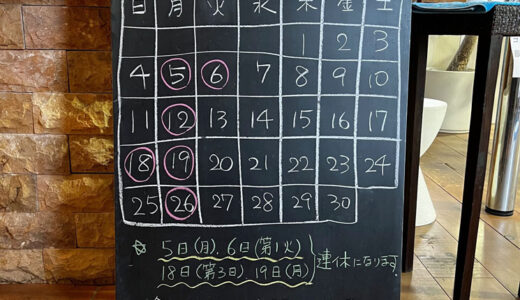 日 月 火 水 木 金 土
1 2 3
4 5 6 7 8 9 10
11 12 13 14 15 16 17
18 19 20 21 22 23 24
25 26 27 28 29 30
☆ 5日(月)、6日(第1火)
18日(第3日) 19日(月)
連休になります